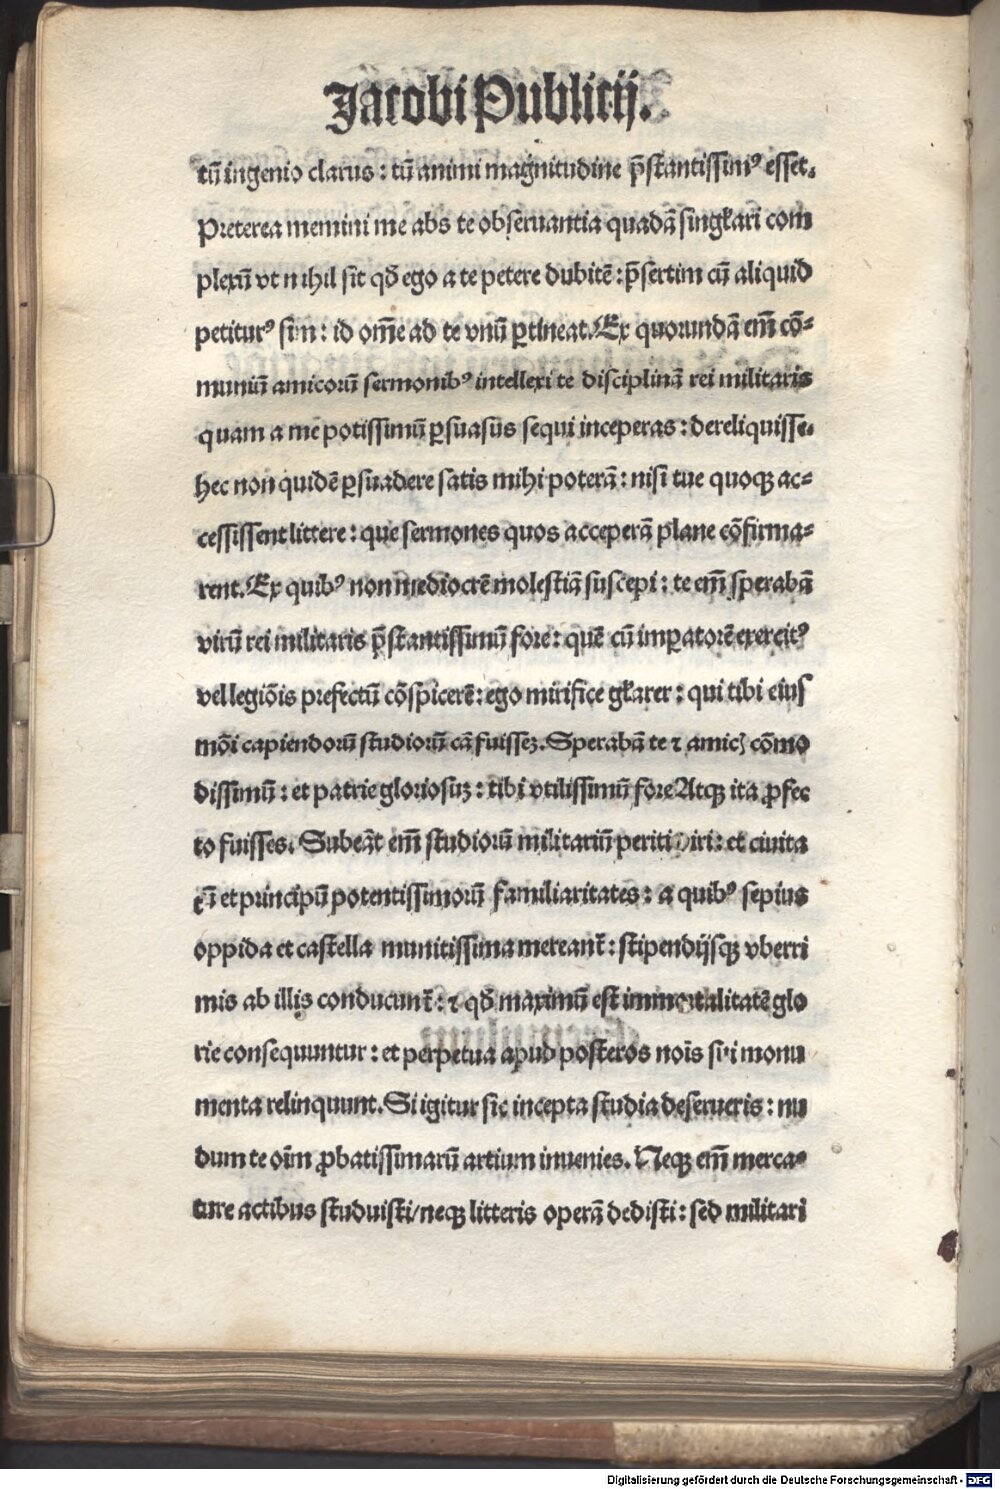 Jacobi Publicij.
tū ingenio clarus : tū animi magnitudine p̄stantissimꝰ esset.
Preterea memini me abs te obseruantia quadā singlari com
plexū vt nihil sit qđ ego a te petere dubitē : p̄sertim cū aliquid
petiturꝰ sim : id om̄e ad te vnū ꝑtineat. Ex quorundā em̄ cō⸗
muniū amicorū sermonibꝰ intellexi te disciplinā rei militaris
quam a me potissimū ꝑsuasus sequi inceperas : dereliquisse.
hec non quidē ꝑsuadere satis mihi poterā : nisi tue quoqꝫ ac⸗
cessissent littere : que sermones quos acceperā plane cōfirma⸗
rent. Ex quibꝰ non mediocrē molestiā suscepi : te em̄ sperabā
virū rei militaris p̄stantissimū fore : quē cū imꝑatorē exercitꝰ
vel legiōis prefectū cōspicerē : ego mirifice glarer : qui tibi eius
mōi capiendorū studiorū cā fuissez. Sperabā te ⁊ amicꝭ cōmo
dissimū : et patrie gloriosuꝫ : tibi vtilissimū fore Atqꝫ ita ꝓfec
to fuisses. Subeāt em̄ studiorū militariū periti viri : et ciuita
tū et principū potentissimorū familiaritates : a quibꝰ sepius
oppida et castella munitissima mereant᷑ : stipendijsqꝫ vberri
mis ab illis conducunt᷑ : ⁊ qđ maximū est immortalitatē glo
rie consequuntur : et perpetua apud posteros nois sui monu
menta relinquunt. Si igitur sic incepta studia deserueris : nu
dum te oīm ꝓbatissimarū artium inuenies. Neqꝫ em̄ merca⸗
ture actibus studuisti / neqꝫ litteris operā dedisti : sed militari
Digitalisierung gefördert durch die Deutsche Forschungsgemeinschaft - DFG